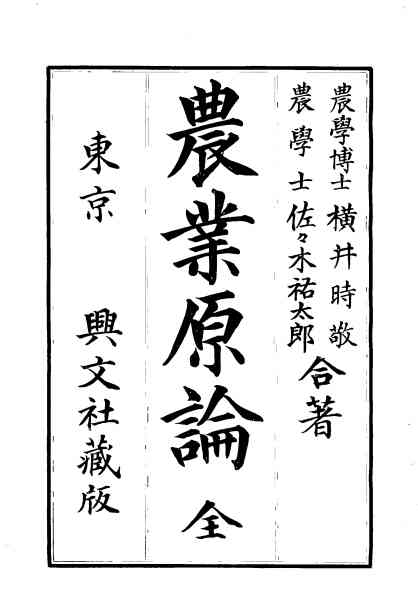 農學博士 横井時敬
農學士 佐々木祐太郎
合著
農業原論 全
東京 興文社藏版